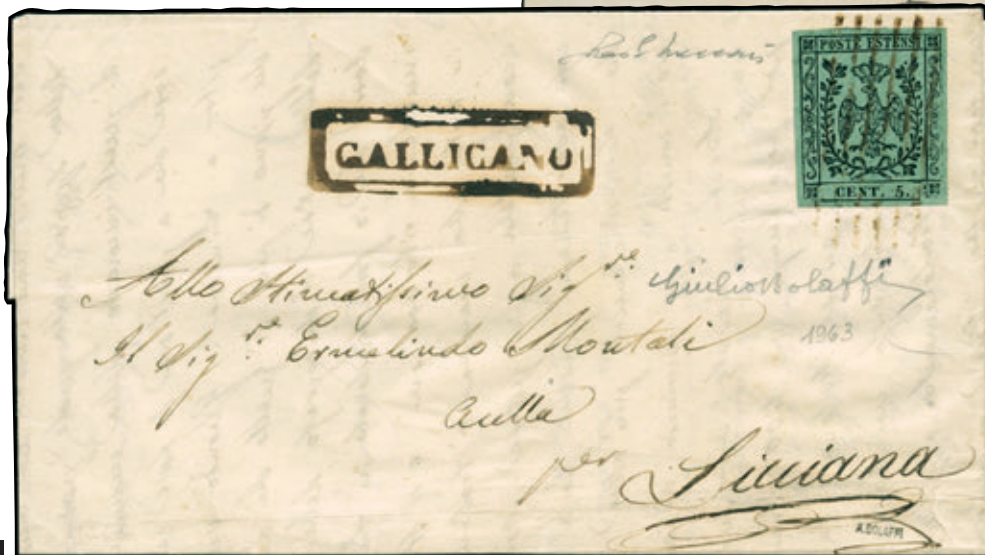 POSTE ESTENSI
CENT. 5.
GALLICANO
Allo Stimatissimo Sig.re
Giulio Bolaffi
Il Sig.re Ermelindo Montali
1963
Aulla
per Licciana
A.BOLAFFI